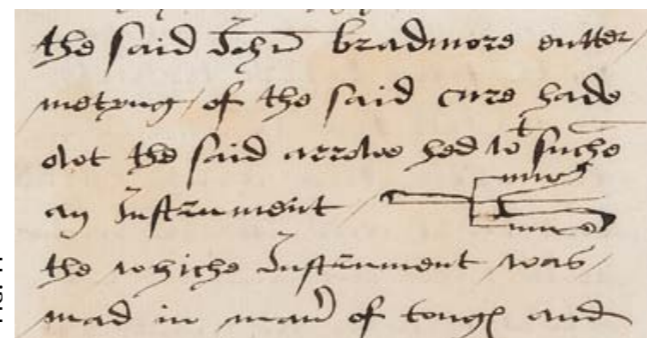 the said John bradmore entter
metyng / of the said cure hade
owt the said arrowe hed wt suche
an Instrument /
the whiche Instrument was /
mad in maner of tonges and